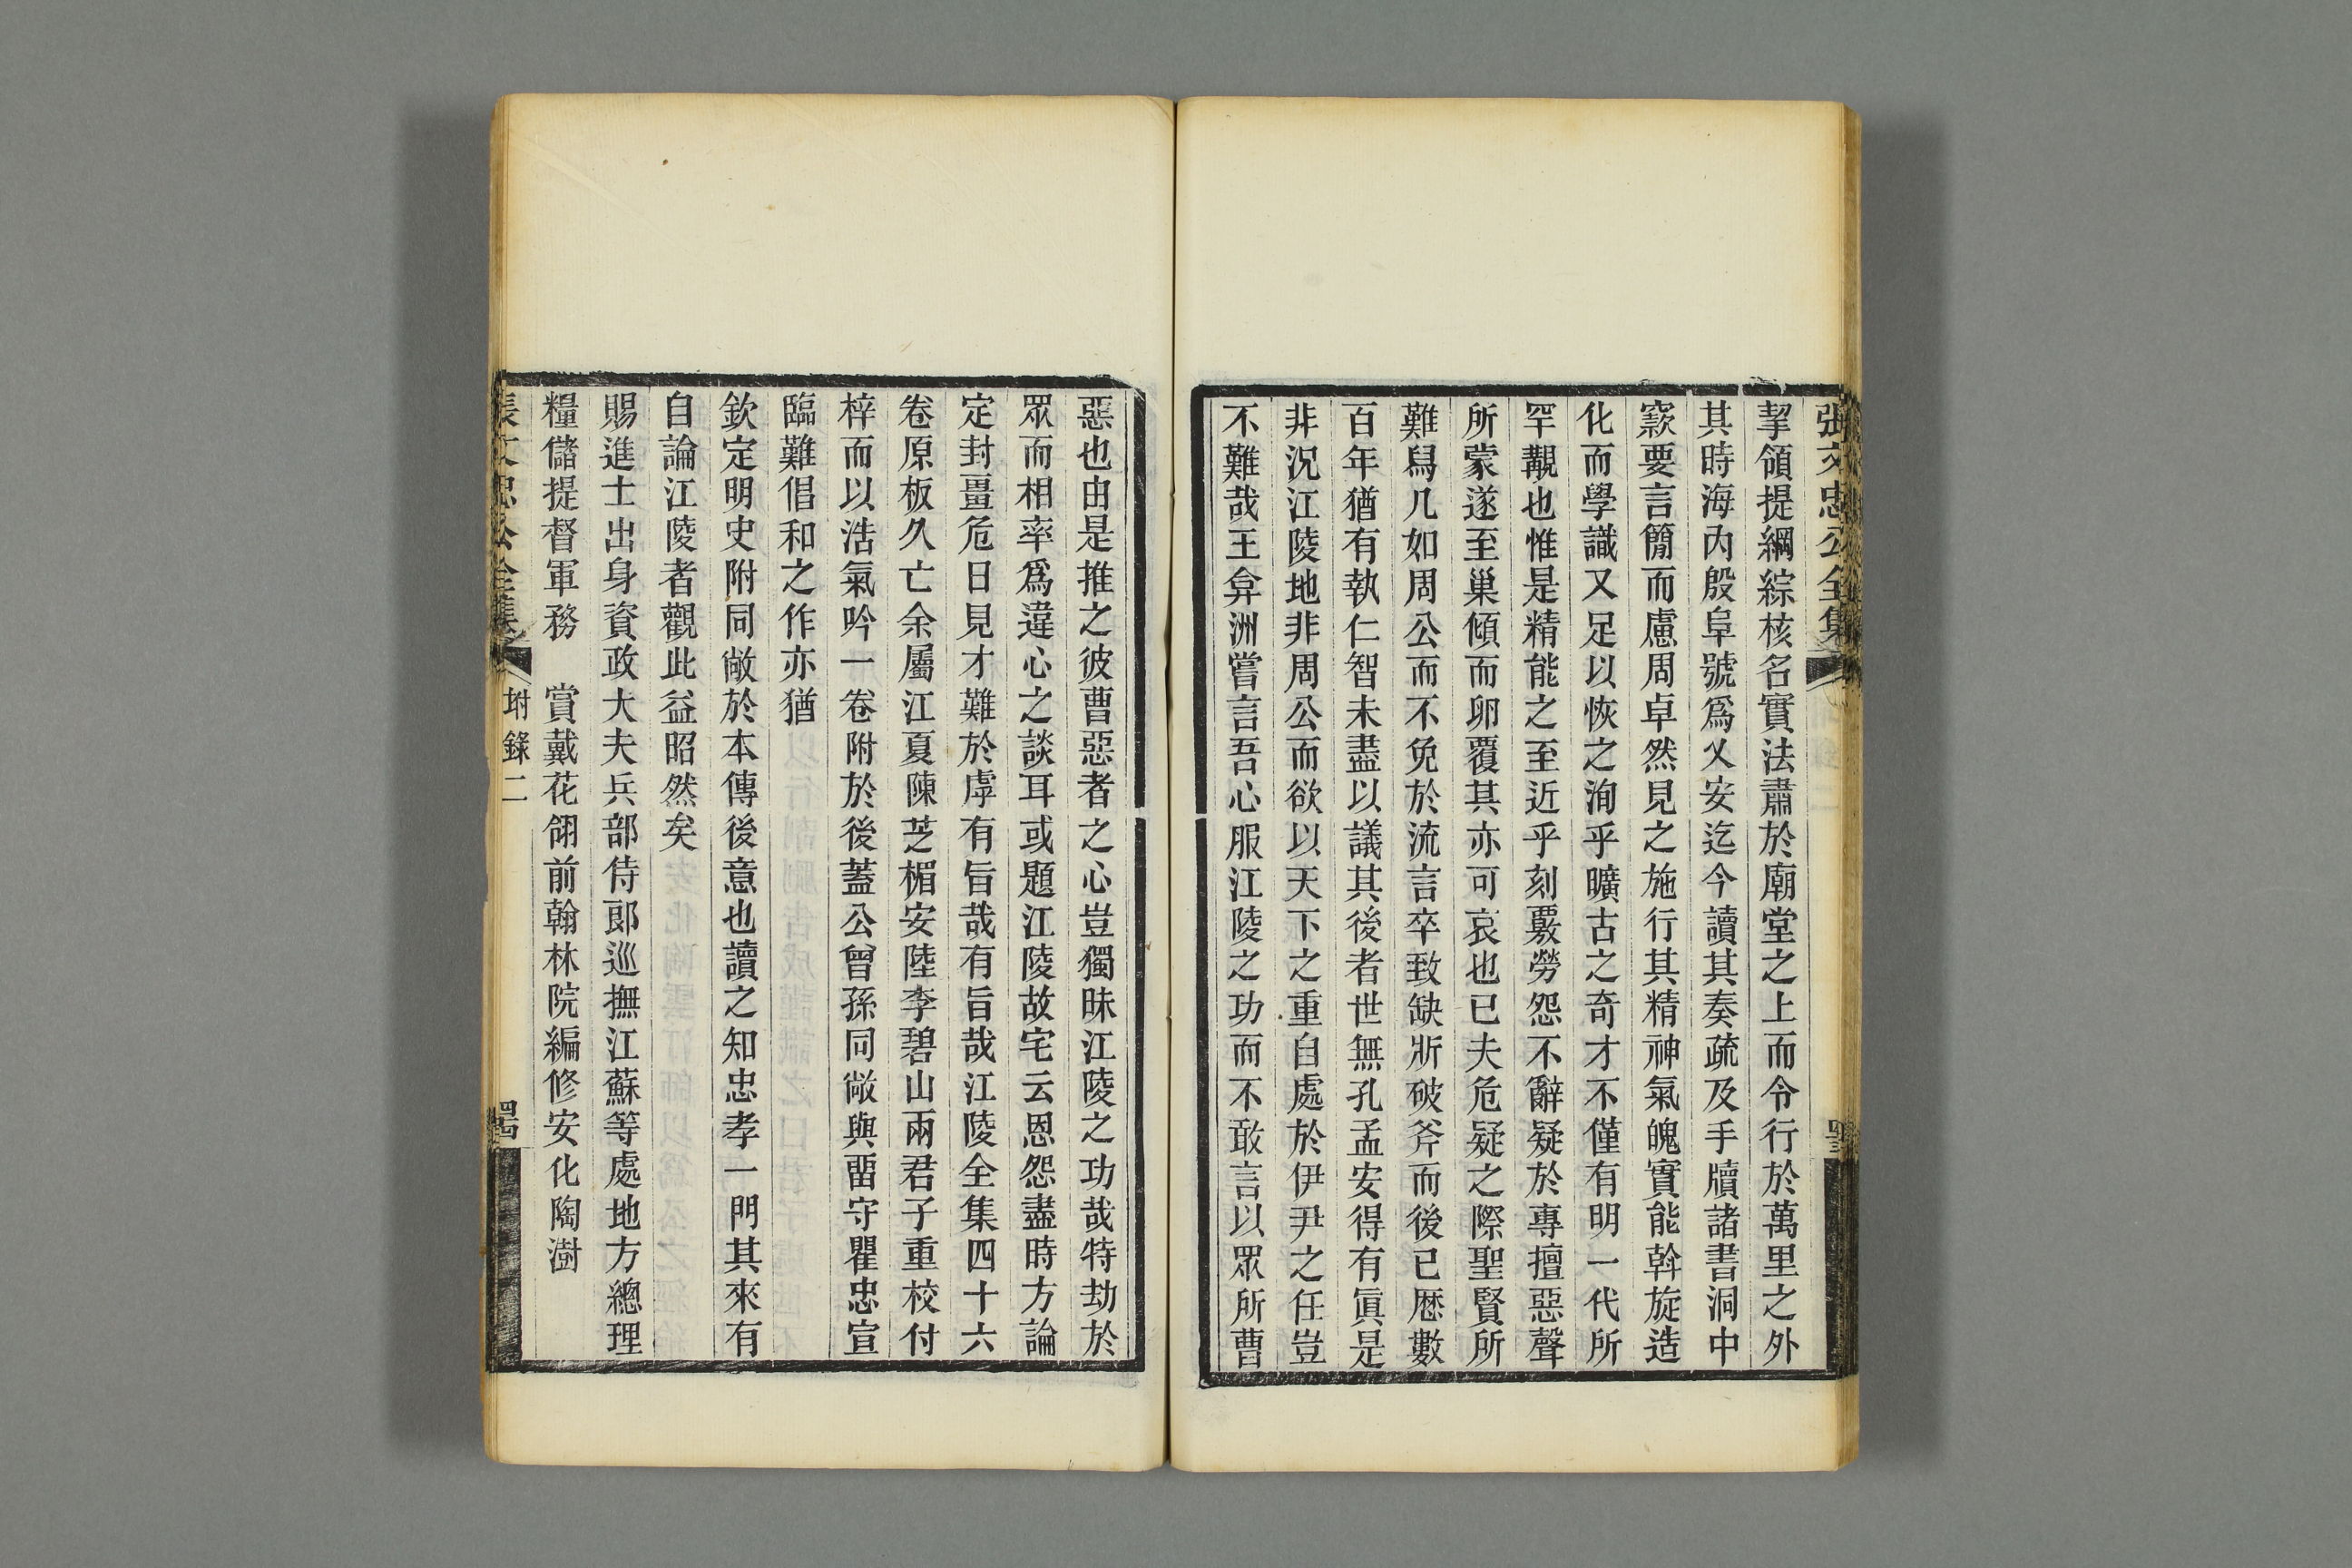 張文忠公全集
挈領提綱綜核名實法肅於廟堂之上而令行於萬里之外
其時海內殷阜號爲乂安迄今讀其奏疏及手牘諸書洞中
窾要言簡而慮周卓然見之施行其精神氣魄實能斡旋造
化而學識又足以恢之洵乎曠古之奇才不僅有明一代所
罕覯也惟是精能之至近乎刻覈勞怨不辭疑於專擅惡聲
所蒙遂至巢傾而卵覆其亦可哀也已夫危疑之際聖賢所
難舄几如周公而不免於流言卒致缺斨破斧而後已歷數
百年猶有執仁智未盡以議其後者世無孔孟安得有眞是
非況江陵地非周公而欲以天下之重自處於伊尹之任豈
不難哉王弇洲嘗言吾心服江陵之功而不敢言以眾所曹
惡也由是推之彼曹惡者之心豈獨昧江陵之功哉特劫於
眾而相率爲違心之談耳或題江陵故宅云恩怨盡時方論
定封畺危日見才難於虖有旨哉有旨哉江陵全集四十六
卷原板久亡余屬江夏陳芝楣安陸李碧山兩君子重校付
梓而以浩氣吟一卷附於後蓋公曾孫同敞與畱守瞿忠宣
臨難倡和之作亦猶
欽定明史附同敞於本傳後意也讀之知忠孝一門其來有
自論江陵者觀此益昭然矣
賜進士出身資政大夫兵部侍郞巡撫江蘇等處地方總理
糧儲提督軍務 賞戴花翎前翰林院編修安化陶澍
張文忠公全集 坿錄二